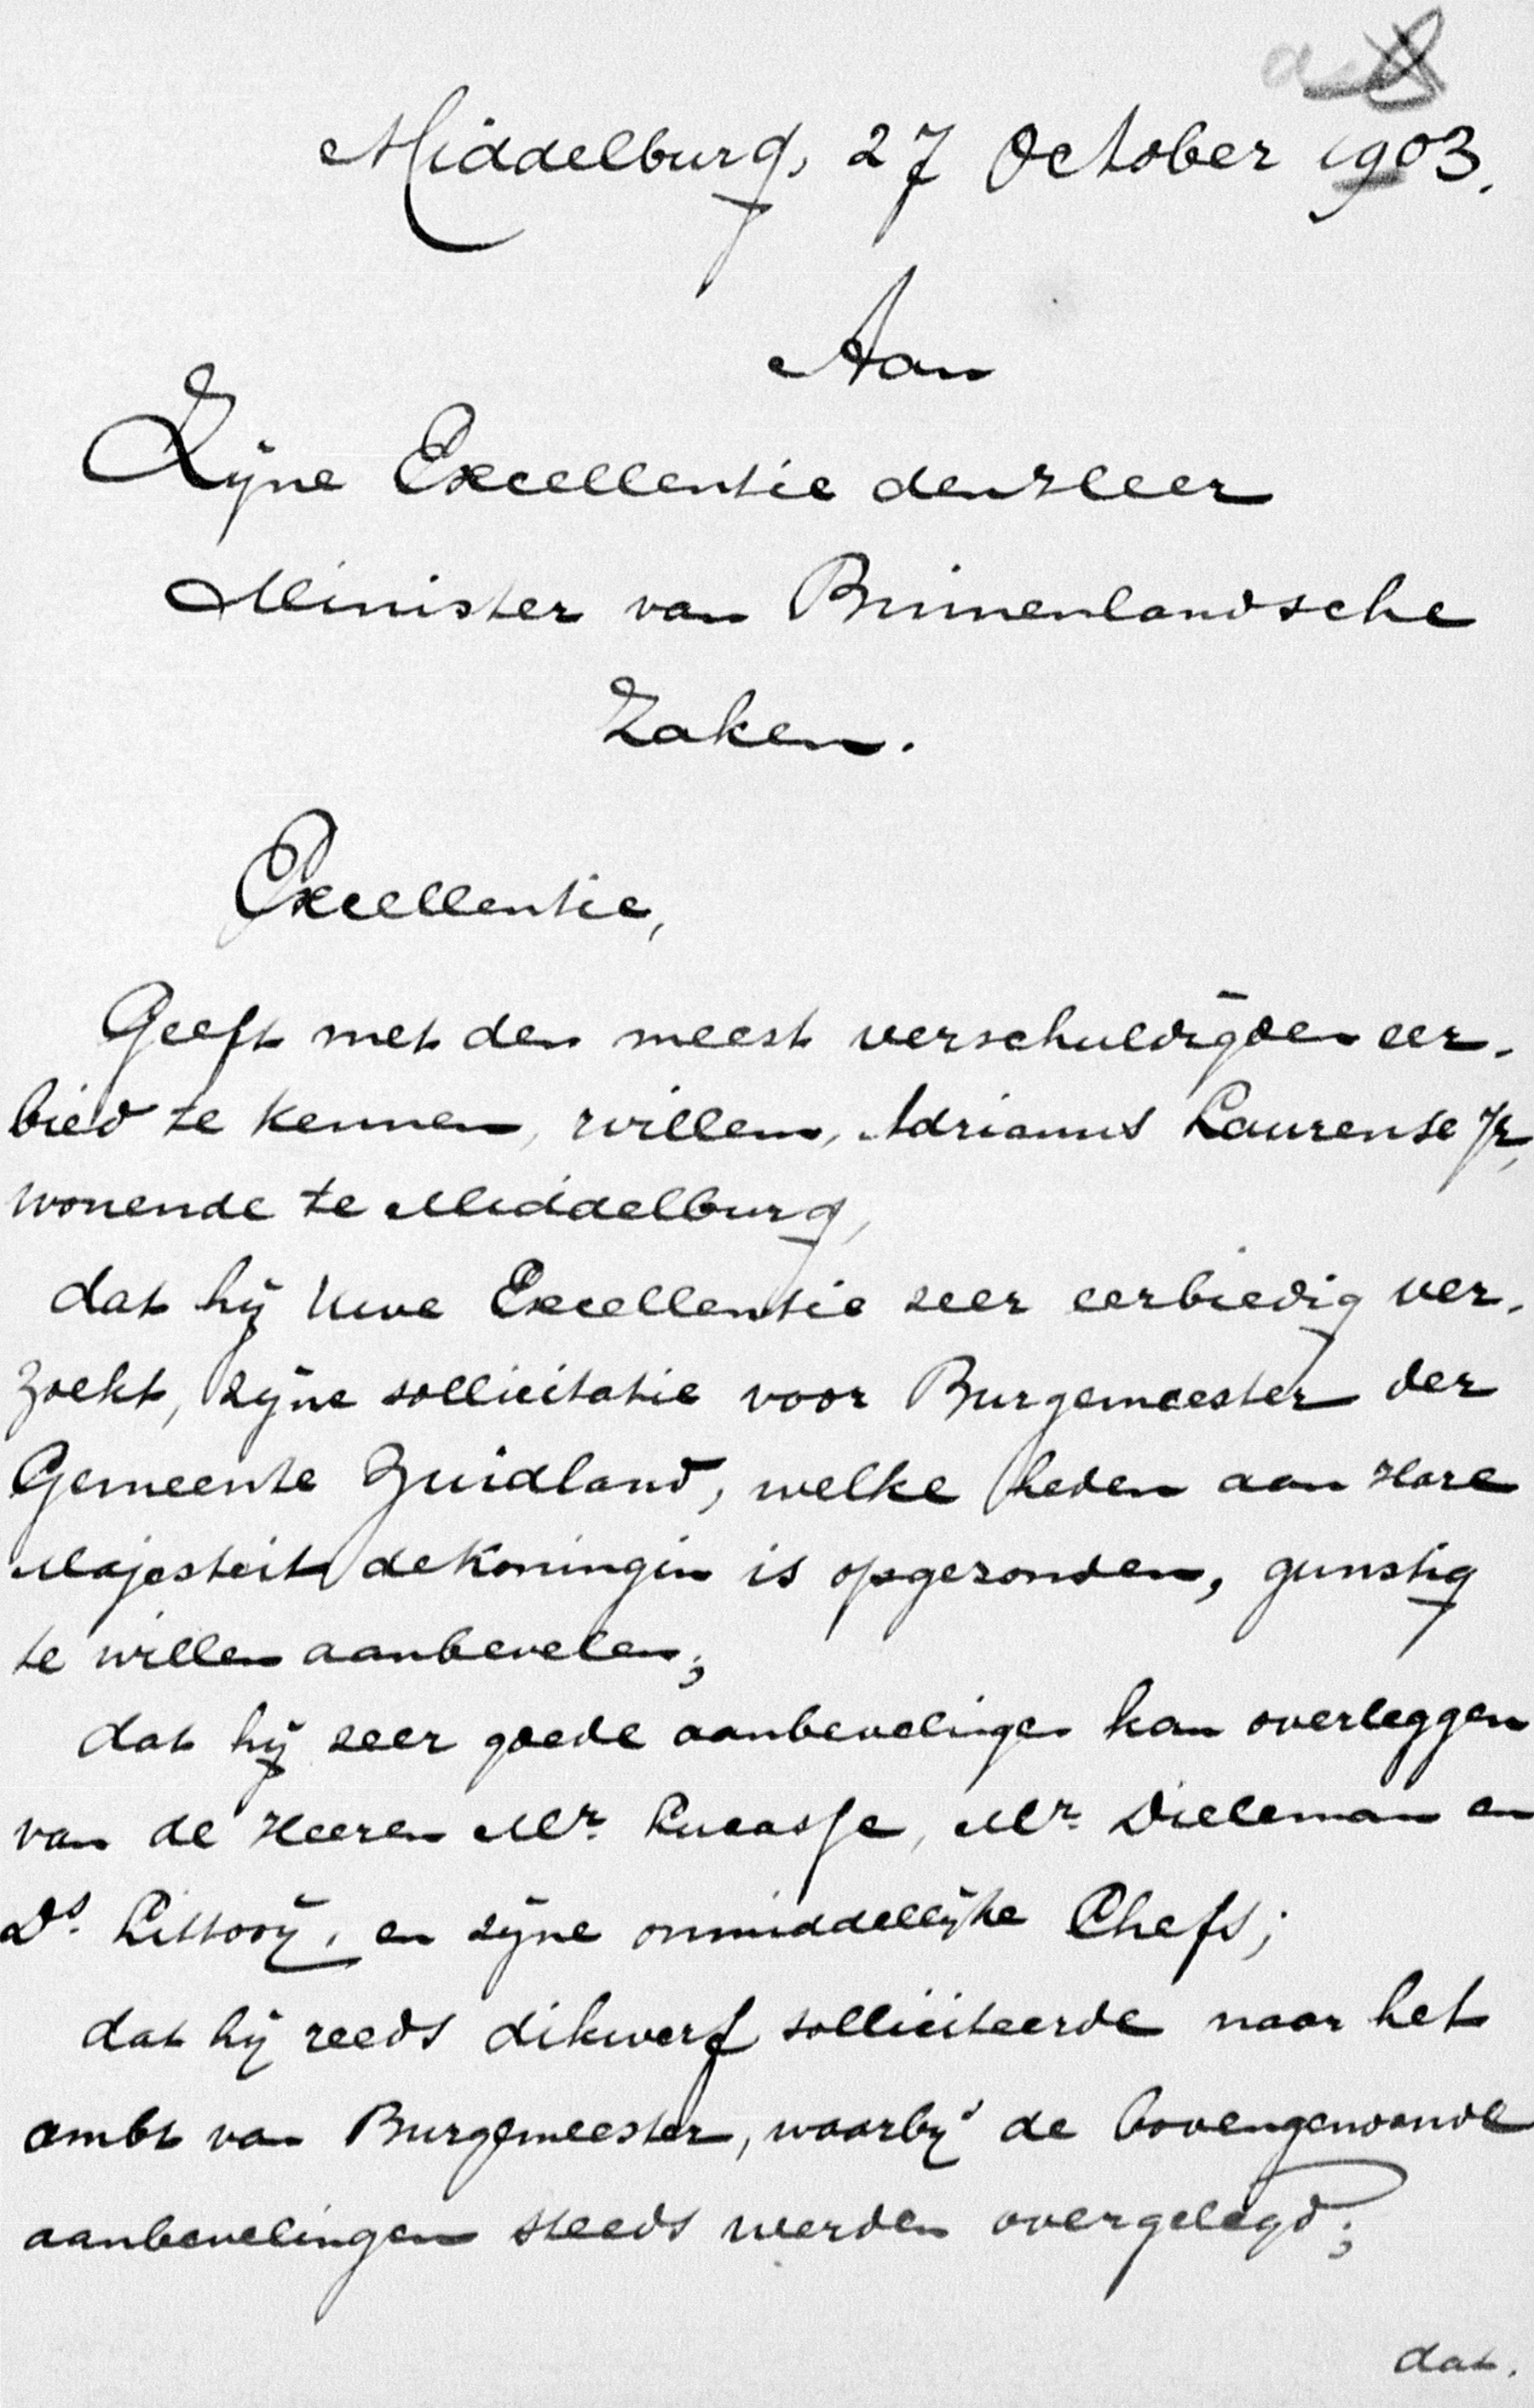 Middelburg, 27 October 1903.
Aan
Zijne Excellentie den Heer
Minister van Binnenlandsche
Zaken.
Excellentie,
Geeft met den meest verschuldigden eer-
bied te kennen, Willem, Adrianus Laurense Jr,
wonende te Middelburg,
dat hij Uwe Excellentie zeer eerbiedig ver-
zoekt, zijne sollicitatie voor Burgemeester der
Gemeente Zuidland, welke heden aan Hare
Majesteit de Koningin is opgezonden, gunstig
te willen aanbevelen;
dat hij zeer goede aanbevelingen kan overleggen
van de Heeren Mr. Lucasse, Mr. Dieleman en
Ds. Littooij, en zijne onmiddellijke Chefs;
dat hij reeds dikwerf solliciteerde naar het
ambt van Burgemeester, waarbij de bovengenoemde
aanbevelingen steeds werden overgelegd;
dat.